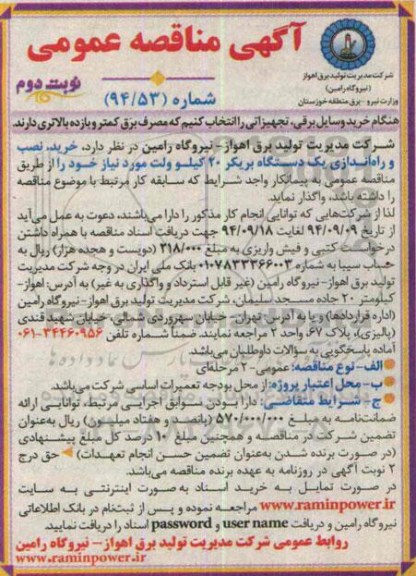 آگهی مناقصه عمومی
شرکت مدیریت تولید برق اهواز
(نیروگاه رامین)
وزارت نیرو - برق منطقه خوزستان
نوبت دوم
شماره (۹۴/۵۳)
هنگام خرید وسایل برقی، تجهیزاتی را انتخاب کنیم که مصرف برق کمتر و بازده بالاتری دارند.
شرکت مدیریت تولید برق اهواز- نیروگاه رامین در نظر دارد، خرید، نصب
و راه‌اندازی یک دستگاه بریکر ۲۰ کیلو ولت مورد نیاز خود را از طریق
مناقصه عمومی به پیمانکار واجد شرایط که سابقه کار مرتبط با موضوع مناقصه
را داشته باشد، واگذار نماید.
لذا از شرکت‌هایی که توانایی انجام کار مذکور را دارا می‌باشند، دعوت به عمل می‌آید
از تاریخ ۹۴/۰۹/۰۹ لغایت ۹۴/۰۹/۱۸ جهت دریافت اسناد مناقصه با همراه داشتن
درخواست کتبی و فیش واریزی به مبلغ ۳۱۸/۰۰۰ (دویست و هجده هزار) ریال به
حساب سیبا به شماره ۰۱۰۷۸۳۳۳۶۶۰۰۳ بانک ملی ایران در وجه شرکت مدیریت
تولید برق اهواز- نیروگاه رامین (غیر قابل استرداد و واگذاری به غیر) به آدرس: اهواز-
کیلومتر ۲۰ جاده مسجد سلیمان، شرکت مدیریت تولید برق اهواز- نیروگاه رامین
(اداره قراردادها) و یا به آدرس: تهران- خیابان سهروردی شمالی، خیابان شهید قندی
(پالیزی)، پلاک ۶۷ واحد ۲ مراجعه نمایند. ضمناً شماره تلفن ۳۴۴۶۰۹۵۶-۰۶۱
آماده پاسخگویی به سؤالات داوطلبان می‌باشد.
الف- نوع مناقصه: عمومی- ۲ مرحله‌ای
ب- محل اعتبار پروژه: از محل بودجه تعمیرات اساسی شرکت می‌باشد.
ج- شرایط متقاضی: دارا بودن سوابق اجرایی مرتبط، توانایی ارائه
ضمانت‌نامه به مبلغ ۵۷۰/۰۰۰/۰۰۰ (پانصد و هفتاد میلیون) ریال به‌عنوان
تضمین شرکت در مناقصه و همچنین مبلغ ۱۰ درصد کل مبلغ پیشنهادی
(در صورت برنده شدن به‌عنوان تضمین حسن انجام تعهدات) حق درج
۲ نوبت آگهی در روزنامه به عهده برنده مناقصه می‌باشد.
در صورت تمایل به خرید اسناد به صورت اینترنتی به سایت
www.raminpower.ir مراجعه نموده و پس از ثبت‌نام در بانک اطلاعاتی
نیروگاه رامین و دریافت user name و password اسناد را دریافت نمایید.
روابط عمومی شرکت مدیریت تولید برق اهواز - نیروگاه رامین
www.raminpower.ir